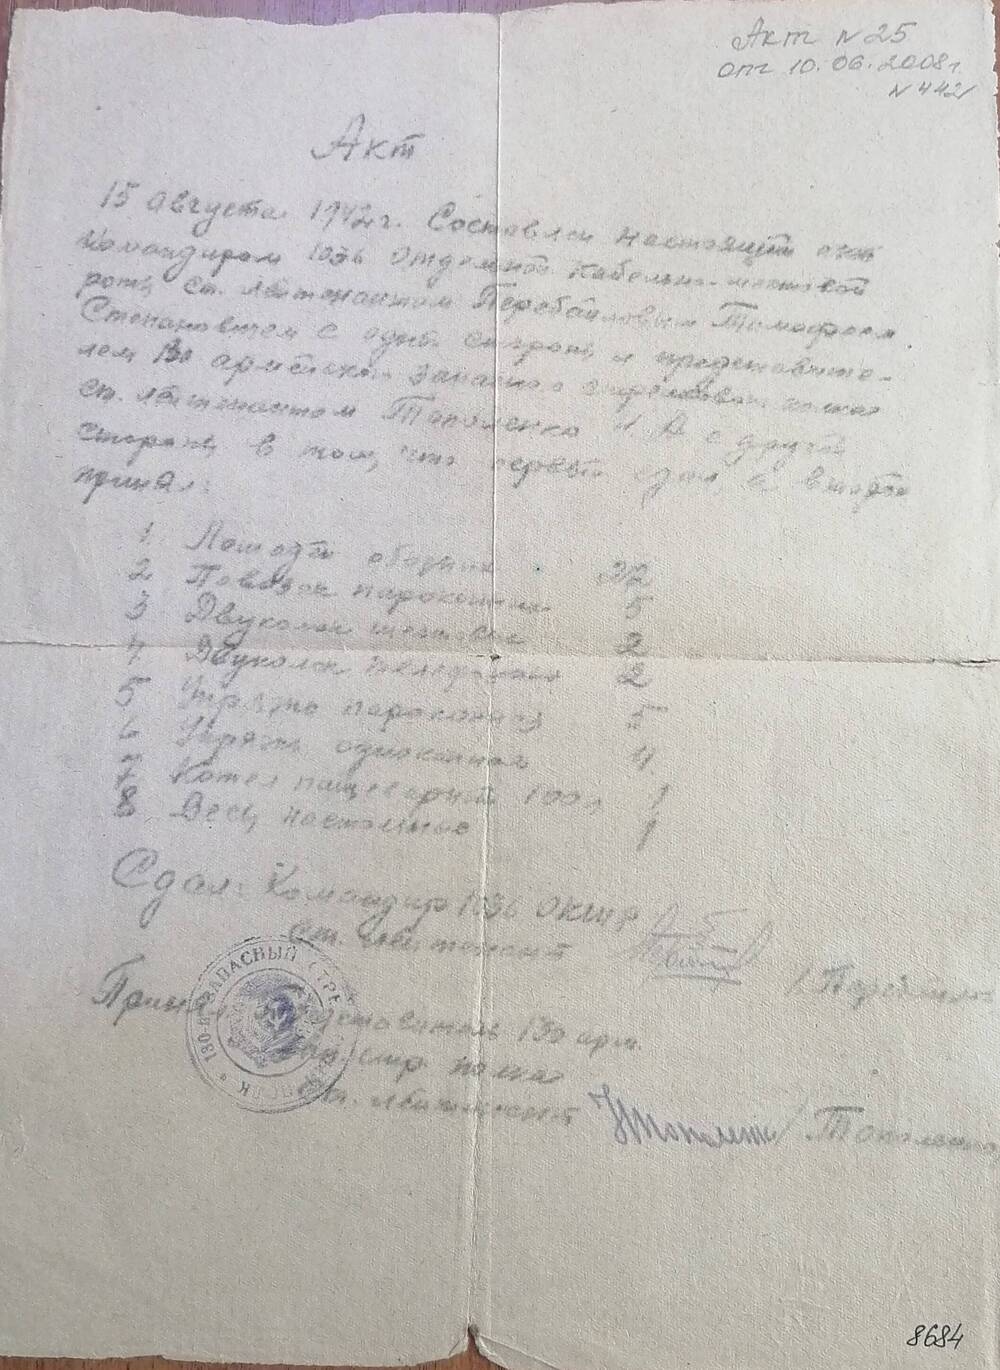 Акт N 25
от 10.06.2008г.
N 442
Акт
15 августа 1942г. Составлен настоящий акт
Командиром 1036 Отдельной Кабельно-шестовой
роты ст. лейтенантом Перебайловым Тимофеем
Степановичем с одной стороны и представите-
лем 130 армейского запасного стрелкового полка
ст. лейтенантом Тополенко И. А с другой
стороны в том, что первый сдал, а второй
принял:
1. Лошадей обозных 22
2 Повозок пароконных 5
3 Двуколок шестовых 2
4. Двуколок телефонных 2
5 Упряжь пароконная 5
6 Упряжь одноконная 4.
7 Котел пищеварный 100 л 1
8 Весы настольные 1
Сдал: Командир 1036 ОКШР
Ст. лейтенант
Принял: представитель 130 арм.
зап. стр. полка
ст. лейтенант Тополенко / Тополенко
130-й ЗАПАСНЫЙ СТРЕЛКОВЫЙ ПОЛК
8684